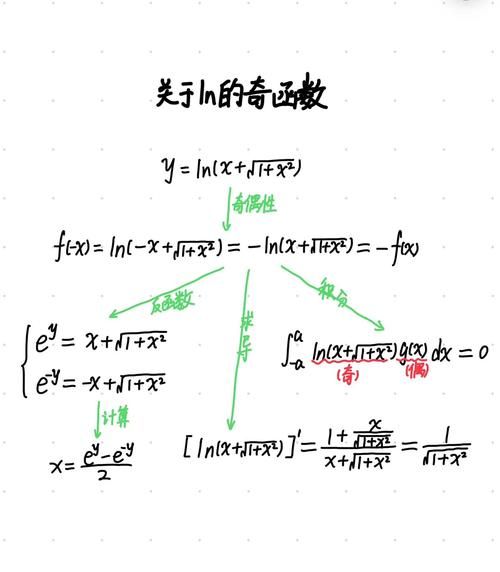 关于ln的奇函数
y=ln(x+√(1+x²))
奇偶性
f(-x)=ln(-x+√(1+x²))=-ln(x+√(1+x²))=-f(x)
反函数
求导
积分
e^y=x+√(1+x²)
e^-y=-x+√(1+x²)
∫_-a^a ln(x+√(1+x²))g(x)dx=0
(奇) (偶)
计算
x=(e^y-e^-y)/2
[ln(x+√(1+x²))]'=(1+x/√(1+x²))/(x+√(1+x²))=1/√(1+x²)